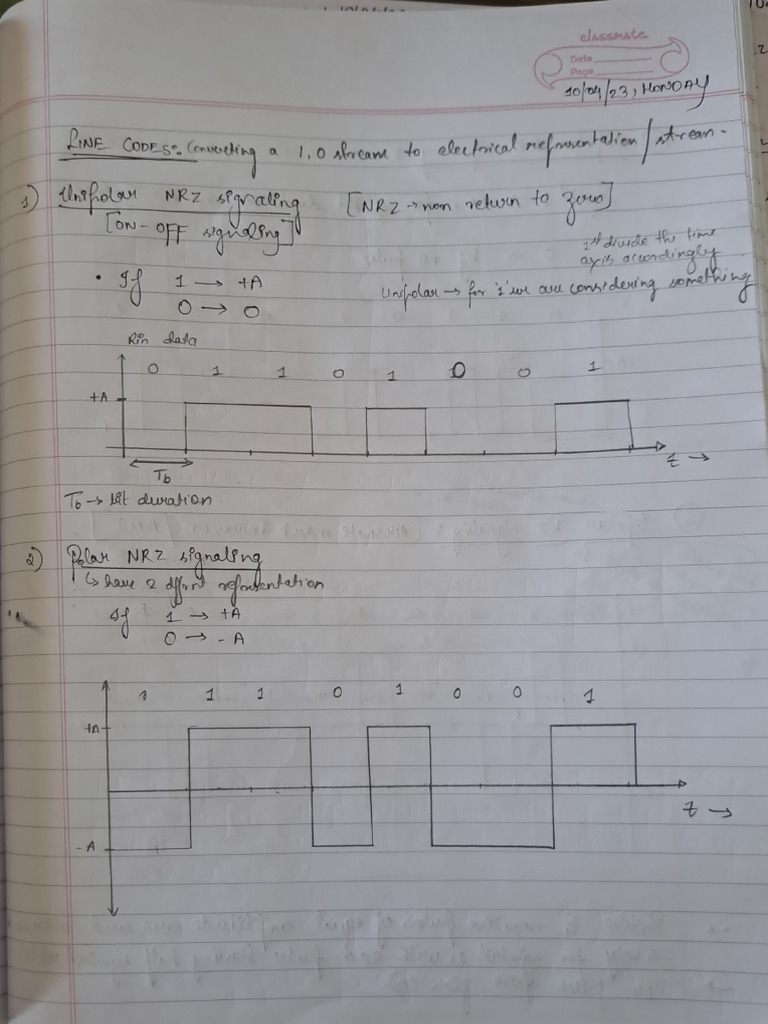 classmate
Date
Page
10/04/23, MONDAY
LINE CODES: Converting a 1.0 stream to electrical representation / stream.
1) Unipolar NRZ signaling [NRZ → non return to zero]
[ON-OFF signaling]
1st divide the time
axis accordingly
• If 1 → +A
Unipolar → for '1' we are considering something
0 → 0
Bin data
0 1 1 0 1 0 0 1
+A
t →
Tb
Tb → bit duration
2) Polar NRZ signaling
↳ have 2 diffrnt representation
If 1 → +A
0 → - A
1 1 0 1 0 0 1
+A
t →
- A